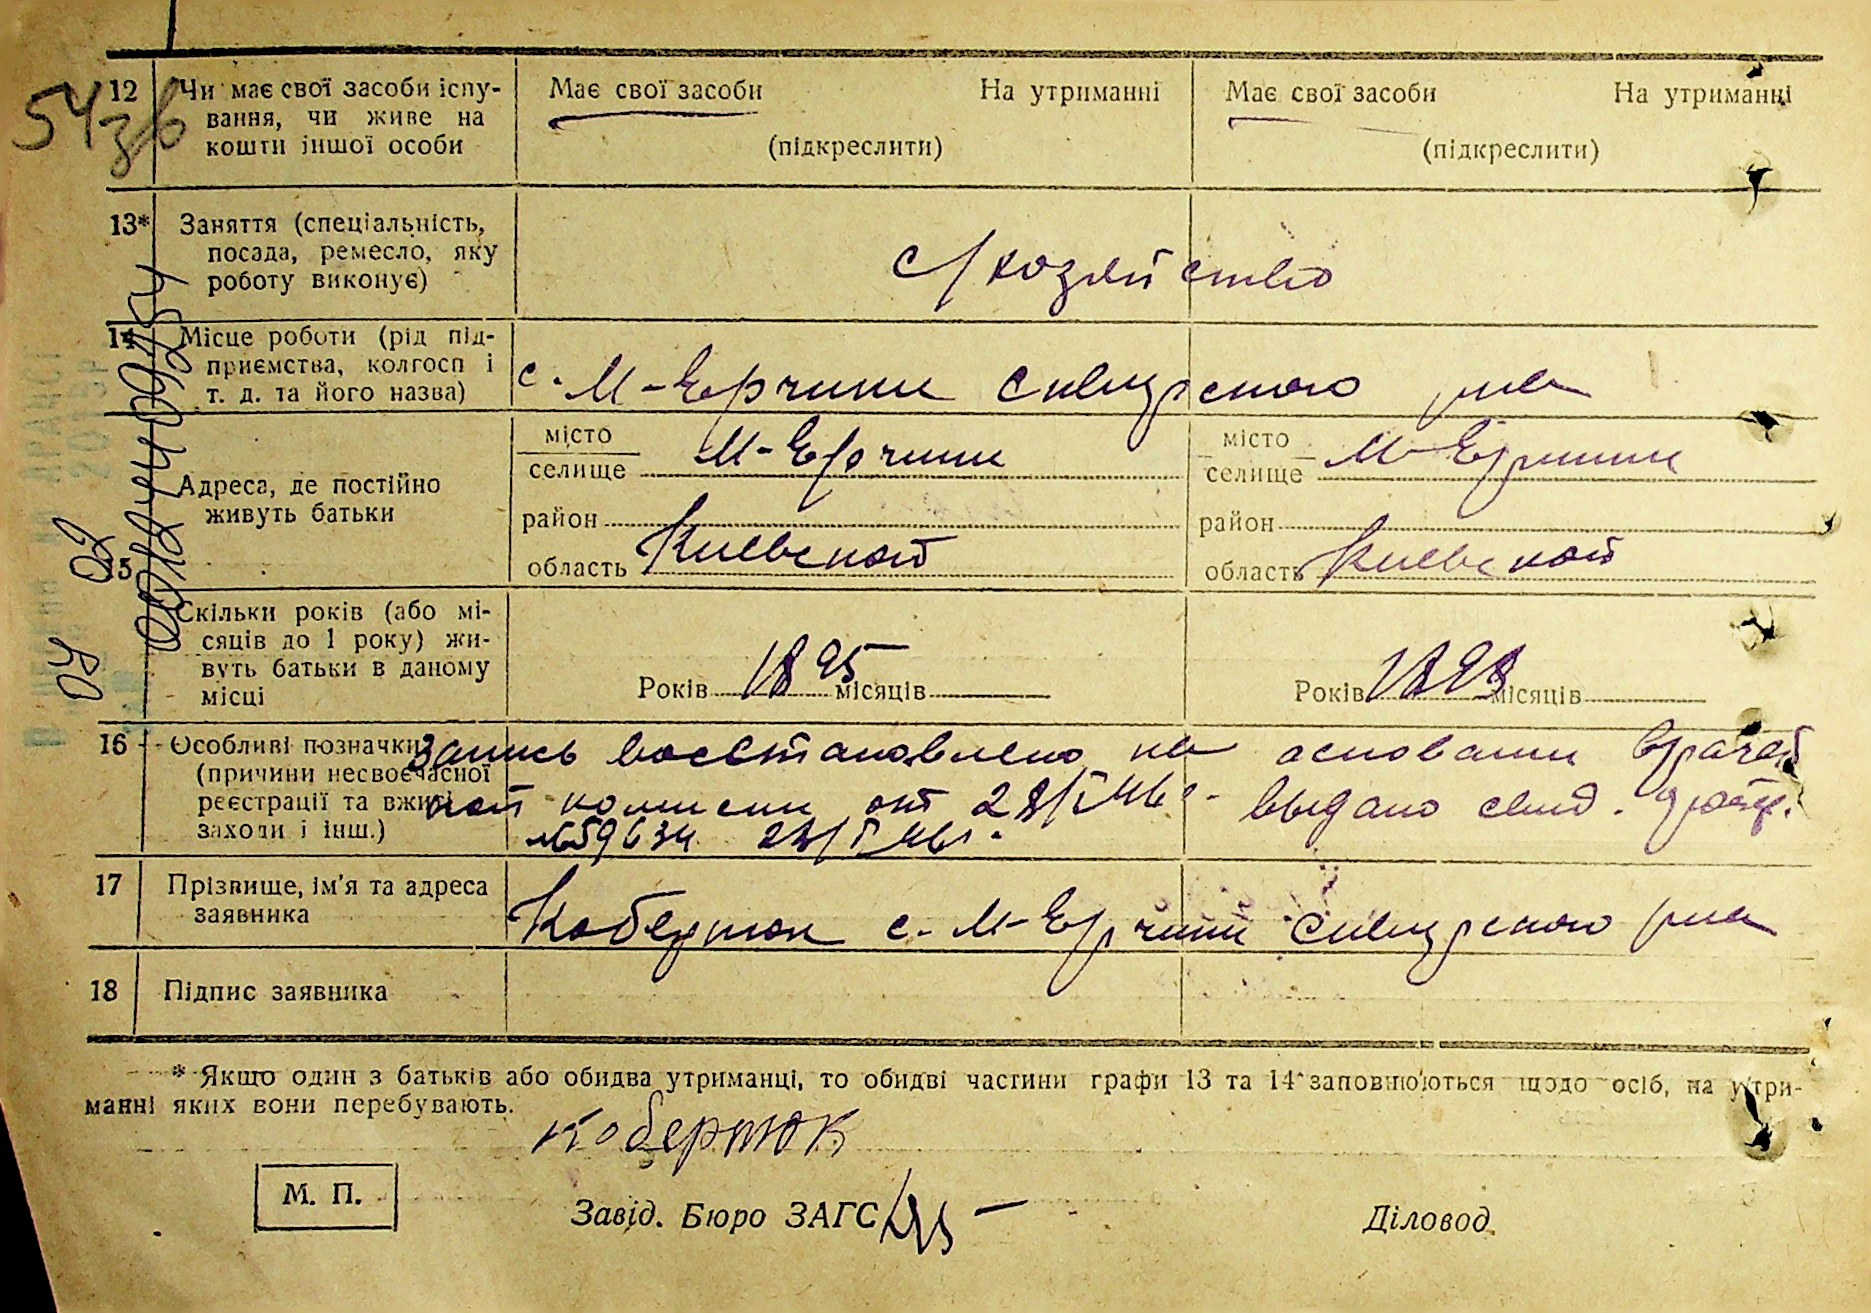 54 зв
12 Чи має свої засоби існу- Має свої засоби На утриманні Має свої засоби На утриманці
вання, чи живе на
кошти іншої особи (підкреслити) (підкреслити)
13* Заняття (спеціальність,
посада, ремесло, яку
роботу виконує) с/хозяйство
14 Місце роботи (рід під-
приємства, колгосп і
т. д. та його назва) с. М-Ерчики Сквирского р-на
15 Адреса, де постійно
живуть батьки
місто М-Ерчики місто М-Ерчики
селище селище
район район
область Киевской область Киевской
Скільки років (або мі-
сяців до 1 року) жи-
вуть батьки в даному
місці
Років 1895 місяців Років місяців
16 Особливі позначки запись восстановлено на основании врачеб
(причини несвоєчасної
реєстрації та вжиті ной комисии от выдано свид.
заходи і інш.) 659634
17 Прізвище, ім'я та адреса
заявника Кобертюк с. М-Ерчики Сквирского р-на
18 Підпис заявника
* Якщо один з батьків або обидва утриманці, то обидві частини графи 13 та 14 заповнюються щодо осіб, на утри-
манні яких вони перебувають.
Кобертюк
М. П.
Завід. Бюро ЗАГС Діловод